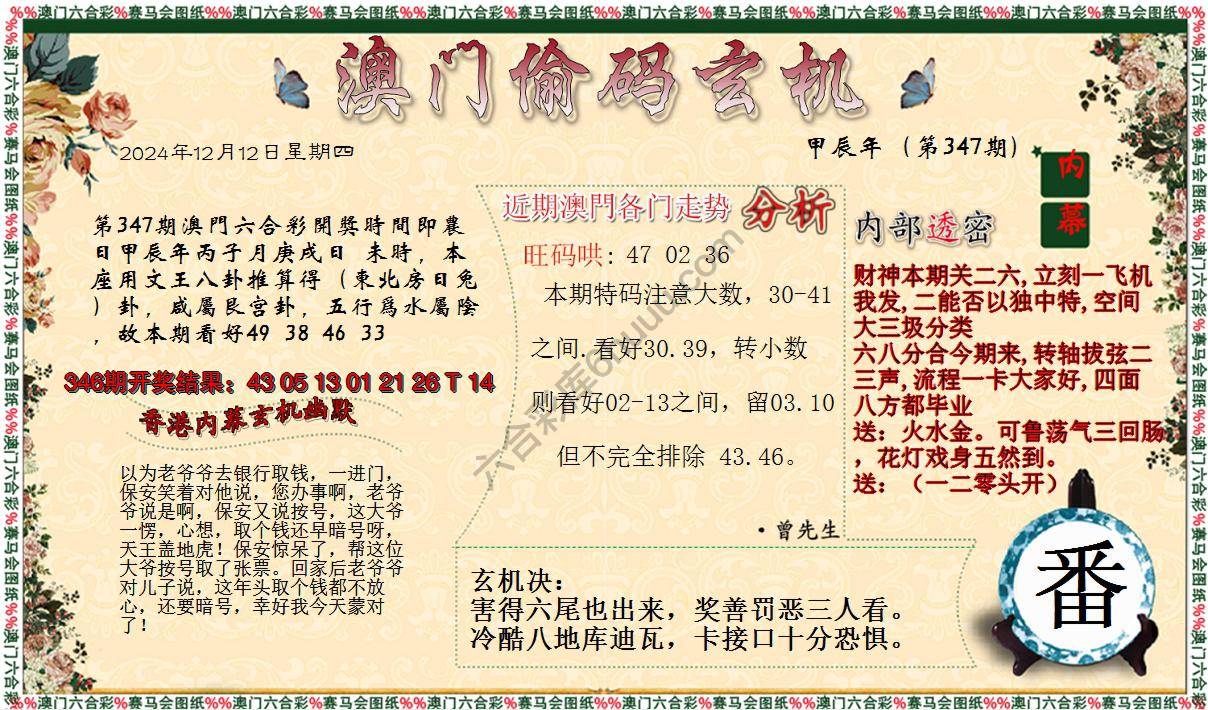 %%澳门六合彩%赛马会图纸%%澳门六合彩%赛马会图纸%%澳门六合彩%赛马会图纸%%澳门六合彩%赛马会图纸%%澳门六合彩%赛马会图纸%%澳门六合彩%赛马会图纸%%
澳门偷码玄机
2024年12月12日星期四
甲辰年（第347期）
内幕
第347期澳門六合彩開獎時間即農
日甲辰年丙子月庚戌日 未時，本
座用文王八卦推算得（東北房日兔
）卦，咸屬艮宫卦，五行爲水屬陰
，故本期看好49 38 46 33
346期开奖结果：43 05 13 01 21 26 T 14
香港内幕玄机幽默
以为老爷爷去银行取钱，一进门，
保安笑着对他说，您办事啊，老爷
爷说是啊，保安又说按号，这大爷
一愣，心想，取个钱还早暗号呀，
天王盖地虎！保安惊呆了，帮这位
大爷按号取了张票。回家后老爷爷
对儿子说，这年头取个钱都不放
心，还要暗号，幸好我今天蒙对
了！
近期澳門各门走势 分析
旺码哄: 47 02 36
本期特码注意大数，30-41
之间.看好30.39，转小数
则看好02-13之间，留03.10
但不完全排除 43.46。
·曾先生
内部透密
财神本期关二六,立刻一飞机
我发,二能否以独中特,空间
大三圾分类
六八分合今期来,转轴拔弦二
三声,流程一卡大家好,四面
八方都毕业
送：火水金。可鲁荡气三回肠
，花灯戏身五然到。
送：（一二零头开）
玄机决：
害得六尾也出来，奖善罚恶三人看。
冷酷八地库迪瓦，卡接口十分恐惧。
番
%%澳门六合彩%赛马会图纸%%澳门六合彩%赛马会图纸%%澳门六合彩%赛马会图纸%%澳门六合彩%赛马会图纸%%澳门六合彩%赛马会图纸%%澳门六合彩%赛马会图纸%%